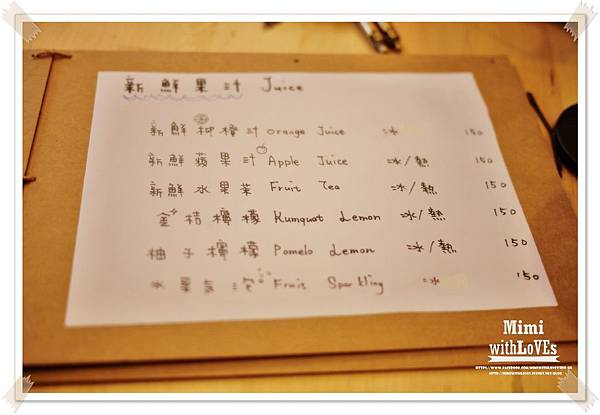 新鮮果汁 Juice
新鮮柳橙汁 Orange Juice 冰 150
新鮮蘋果汁 Apple Juice 冰/熱 150
新鮮水果茶 Fruit Tea 冰/熱 150
金桔檸檬 Kumquat Lemon 冰/熱 150
柚子檸檬 Pomelo Lemon 冰/熱 150
水果氣泡 Fruit Sparkling 冰 150
Mimi
withLoVEs